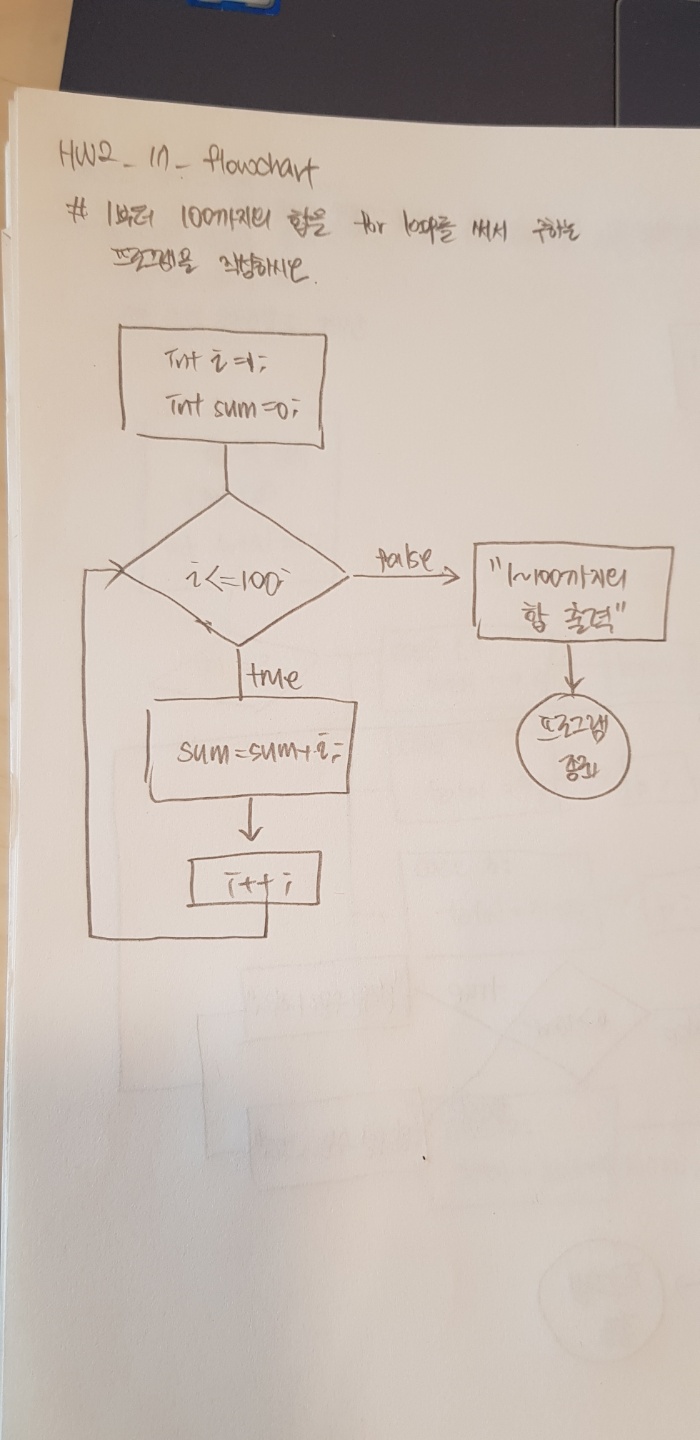 HW2_17_flowchart
# 1부터 100까지의 합을 for loop를 써서 구하는
프로그램을 작성하시오.
int i=1;
int sum=0;
i<=100;
false
"1~100까지의
합 출력"
true
프로그램
종료
sum=sum+i;
i++;